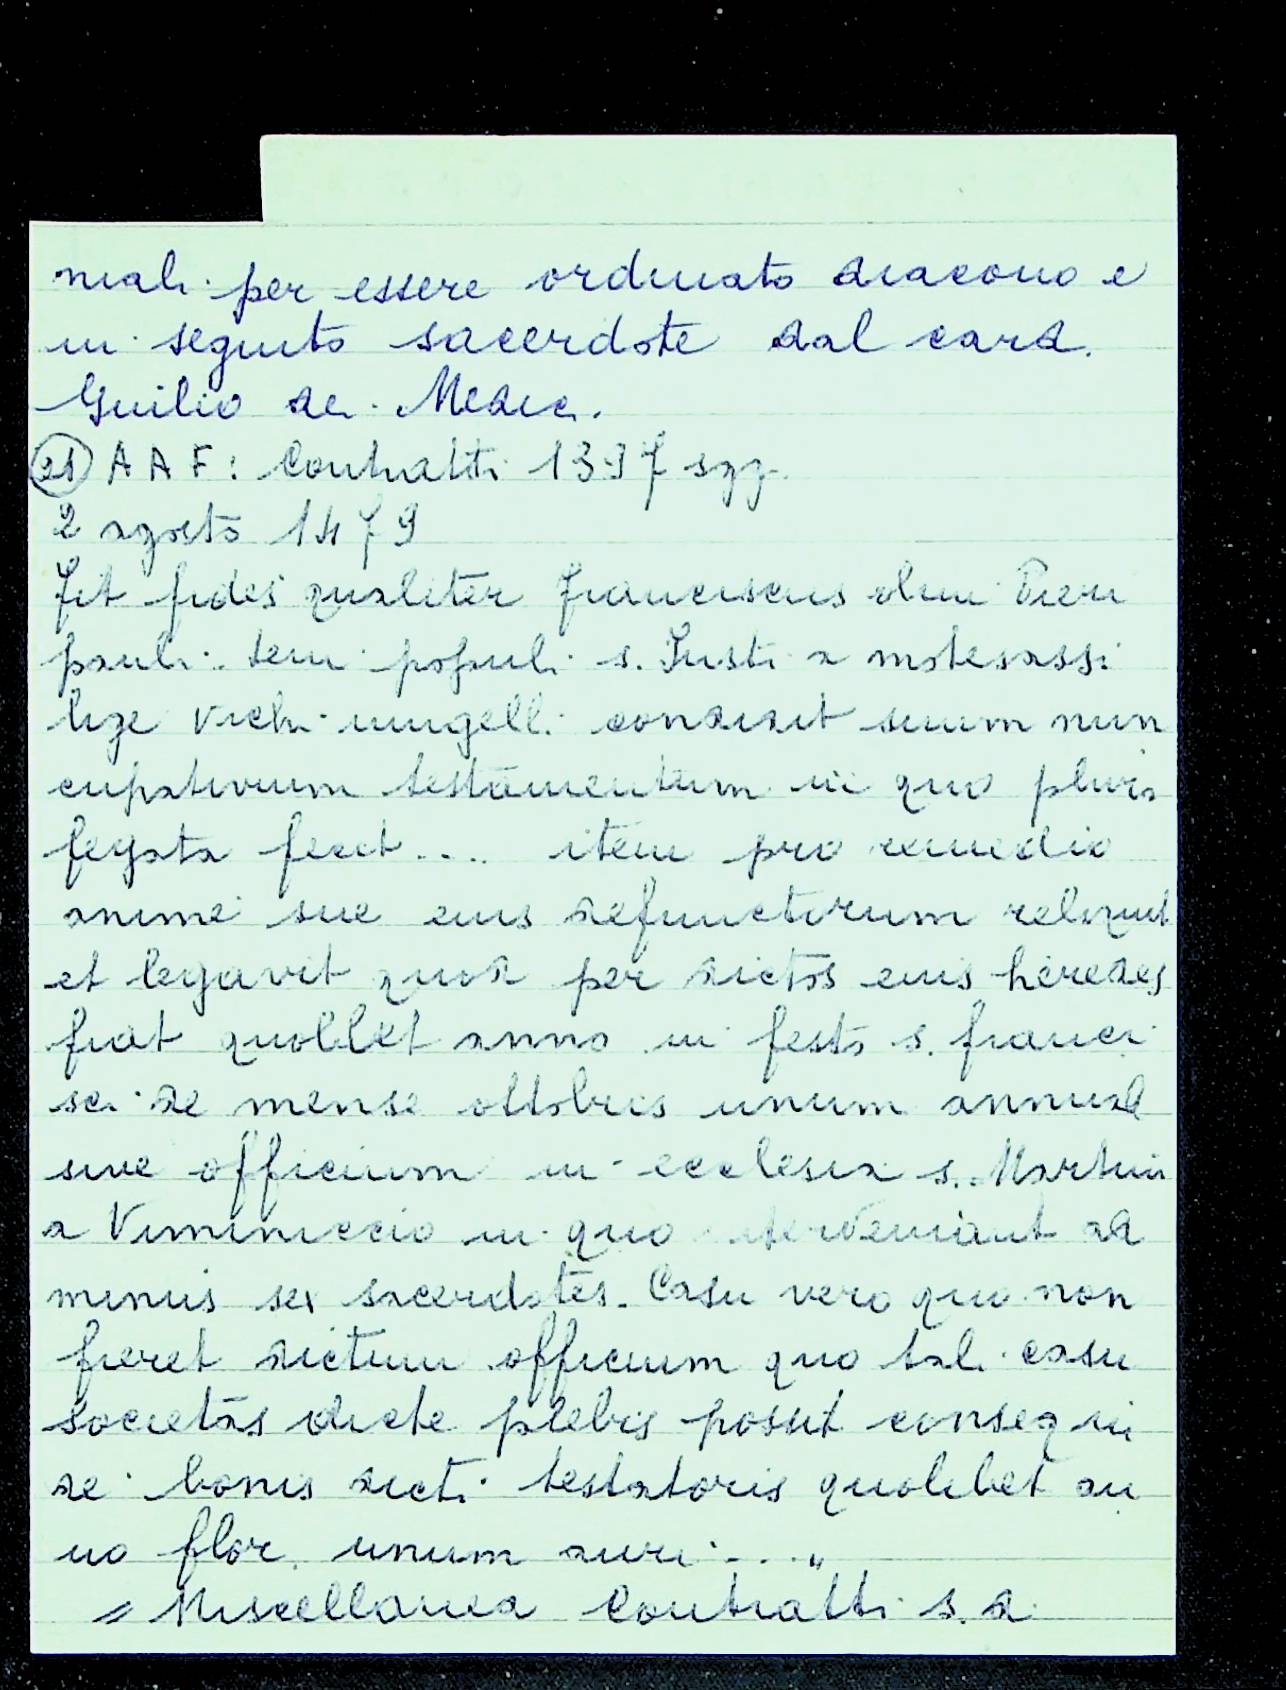 niali per essere ordinato diacono e
in seguito sacerdote dal card.
Guilio de Medici.
(21) AAF: Contratti 1397 sgg.
2 agosto 1479
fit fides qualiter franciscus olim Pieri
pauli tem populi s. Justi a motesassi
lige vichi mugelli condidit suum nun
cupativum testamentum in quo pluria
legata fecit .... item pro remedio
anime sue eius defunctorum reliquit
et legavit quod per dictos eius heredes
fiat quolibet anno in festo s. franci
sci de mense ottobris unum annual
sive officium in ecclesia s. Martini
a Viminiccio in quo interveniant ad
minus sex sacerdotes. Casu vero quo non
fieret dictum officium quo tali casu
societas dicte plebis possit consequi
de bonis dicti testatoris quolibet an
no flor. unum auri ...."
= Miscellanea Contratti s.d.